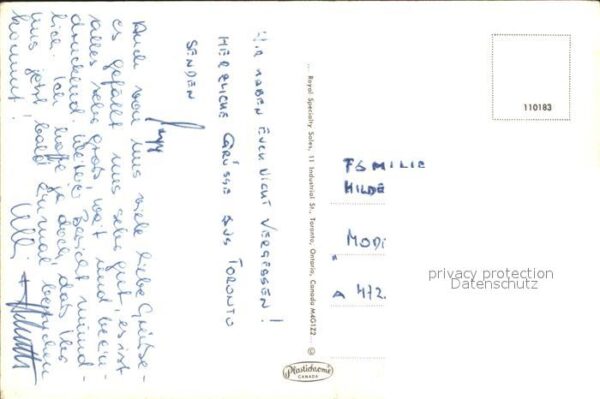 WIR HABEN EUCH NICHT VERGESSEN!
HERZLICHE GRÜSSE AUS TORONTO
SENDEN
Auch von uns viele liebe Grüsse.
es gefällt uns sehr gut, es ist
alles sehr groß, weit und beein-
druckend. Bericht münd-
lich. Ich hoffe ja doch, daß Ihr
uns jetzt bald einmal besuchen
kommt!
Ulli +
... Royal Specialty Sales, 11 Industrial St., Toronto, Ontario, Canada M4G1Z2 ... ©
Plastichrome
CANADA
110183
FAMILIE
HILDE
MODI
A 472.
privacy protection
Datenschutz